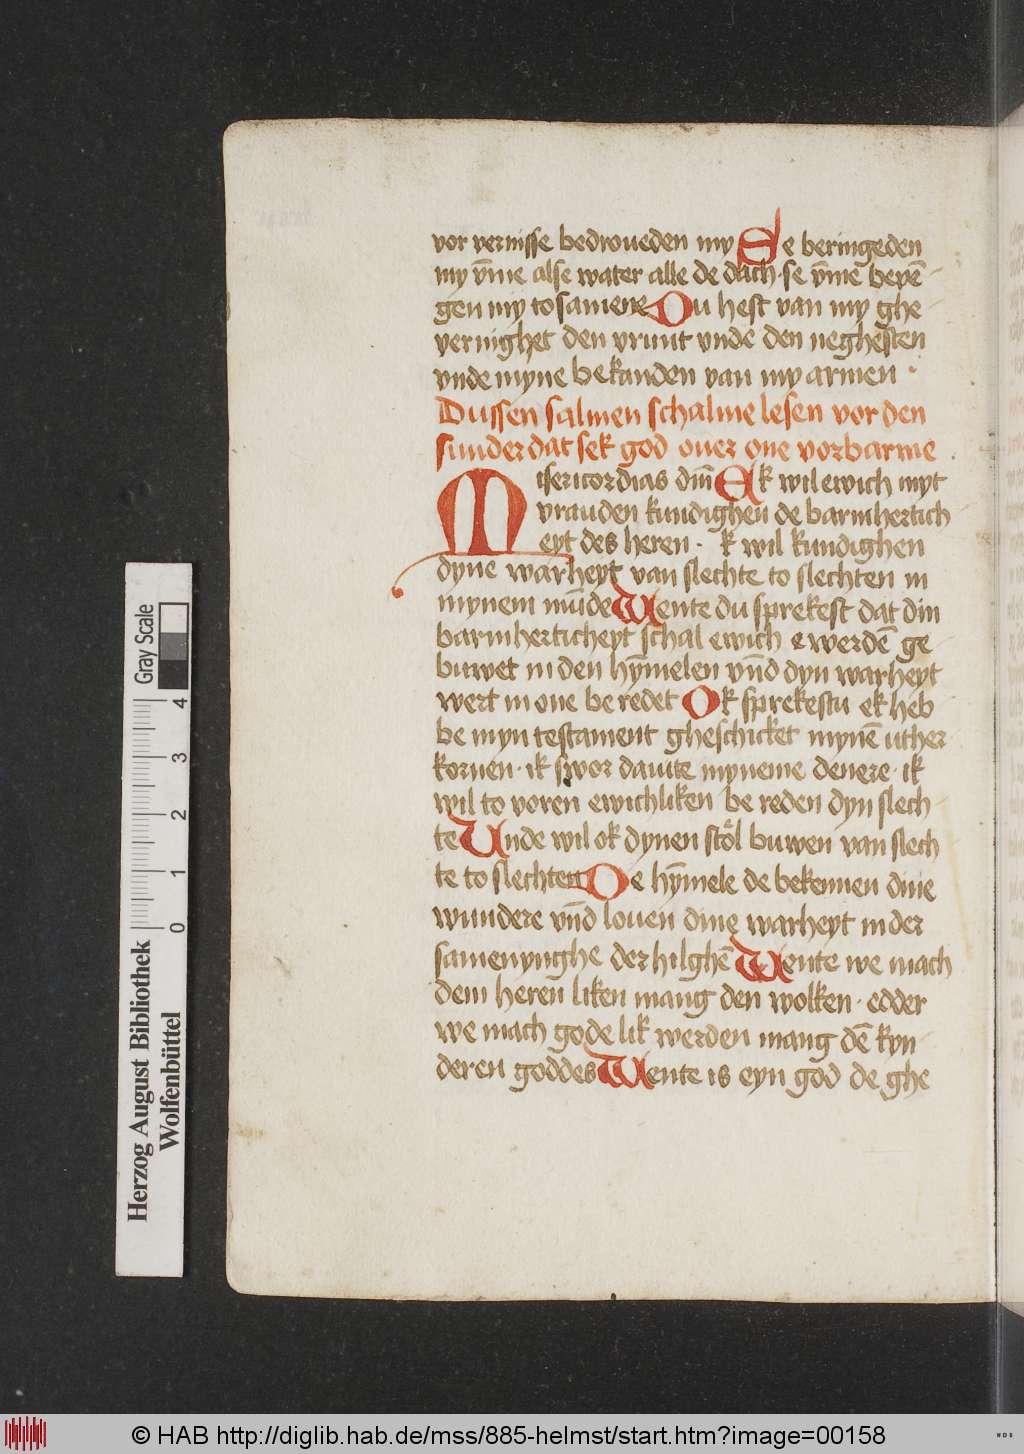 vor vernisse bedroueden my Se beringeden
my v̄me alse water alle de dach · se v̄me beven̄
gen my to samene Du hest van my ghe
vernighet den vrunt vnde den neghesten
vnde myne bekanden van my armen ·
Dussen salmen schalme lesen vor den
sunder dat sek god ouer one vorbarme
Misericordias dm̄ Ek wil ewich myt
vrauden kundighen de barmhertich
eyt des heren · k wil kundighen
dyne warheyt van slechte to slechten in
mynem mūde Wente du sprekest dat din
barmherticheyt schal ewich e werdē ge
buwet in den hȳmelen vn̄d dyn warheyt
wert in one be redet Ok sprekestu ek heb
be myn testament gheschicket mynē uther
kornen · ik swor dauite myneme denere · ik
wil to voren ewichliken be reden dyn slech
te Unde wil ok dynen stol buwen van slech
te to slechten De hȳmele de bekennen dine
wundere vn̄d louen dine warheyt in der
samenynghe der hilghē Wente we mach
dem heren liken mang den wolken · edder
we mach gode lik werden mang dē kyn
deren goddes Wente is eyn god de ghe
Herzog August Bibliothek
Wolfenbüttel
0 1 2 3 4
Gray Scale
© HAB http://diglib.hab.de/mss/885-helmst/start.htm?image=00158